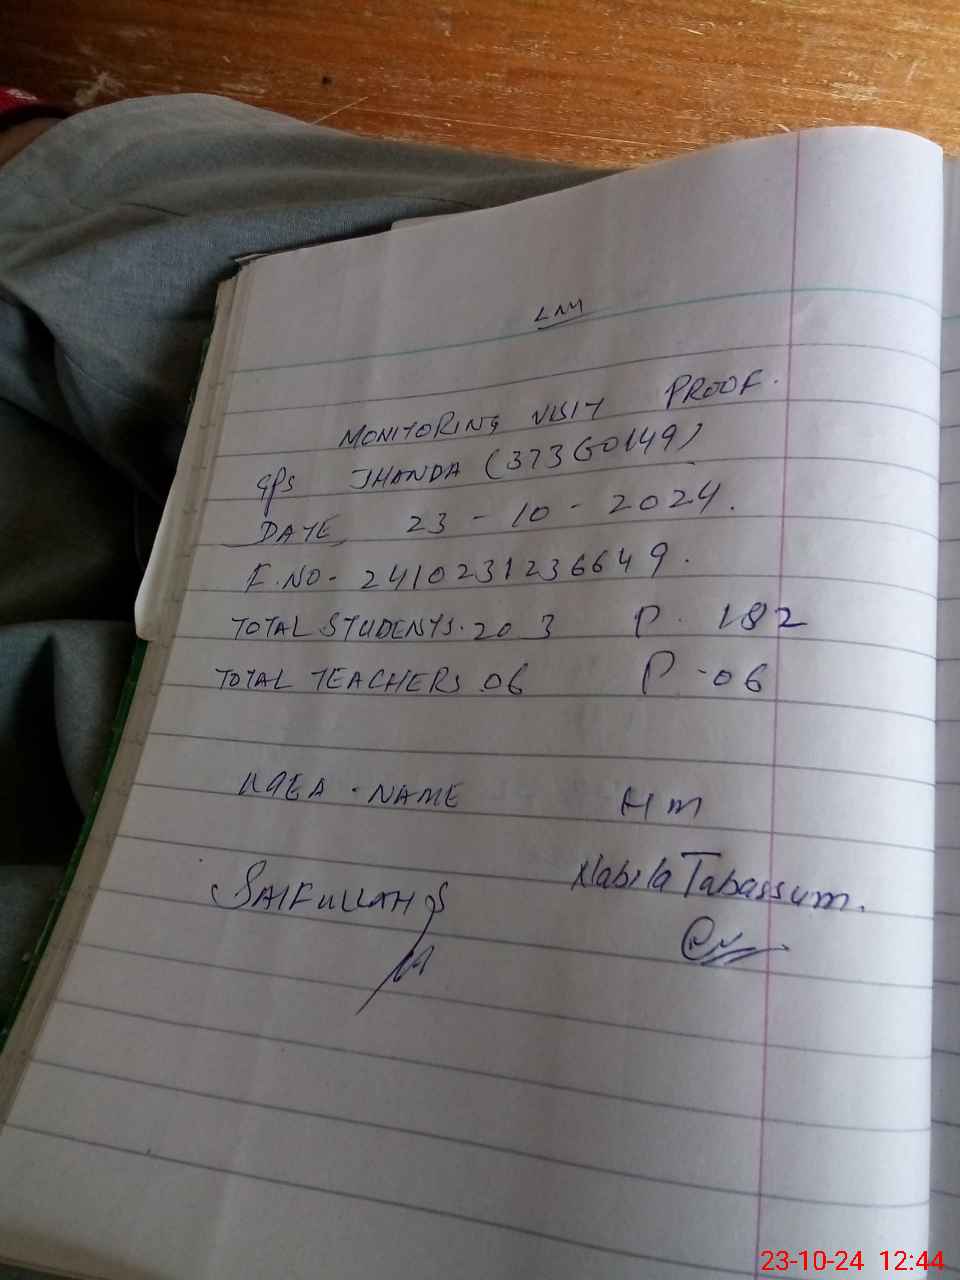 LNM
MONITORING VISIT PROOF.
GPS JHANDA (37360149)
DATE 23-10-2024.
F.NO- 2410231236649.
TOTAL STUDENTS. 203 P. 182
TOTAL TEACHERS 06 P-06
MEA. NAME HM
SAIFULLAH Nabila Tabassum.
23-10-24 12:44